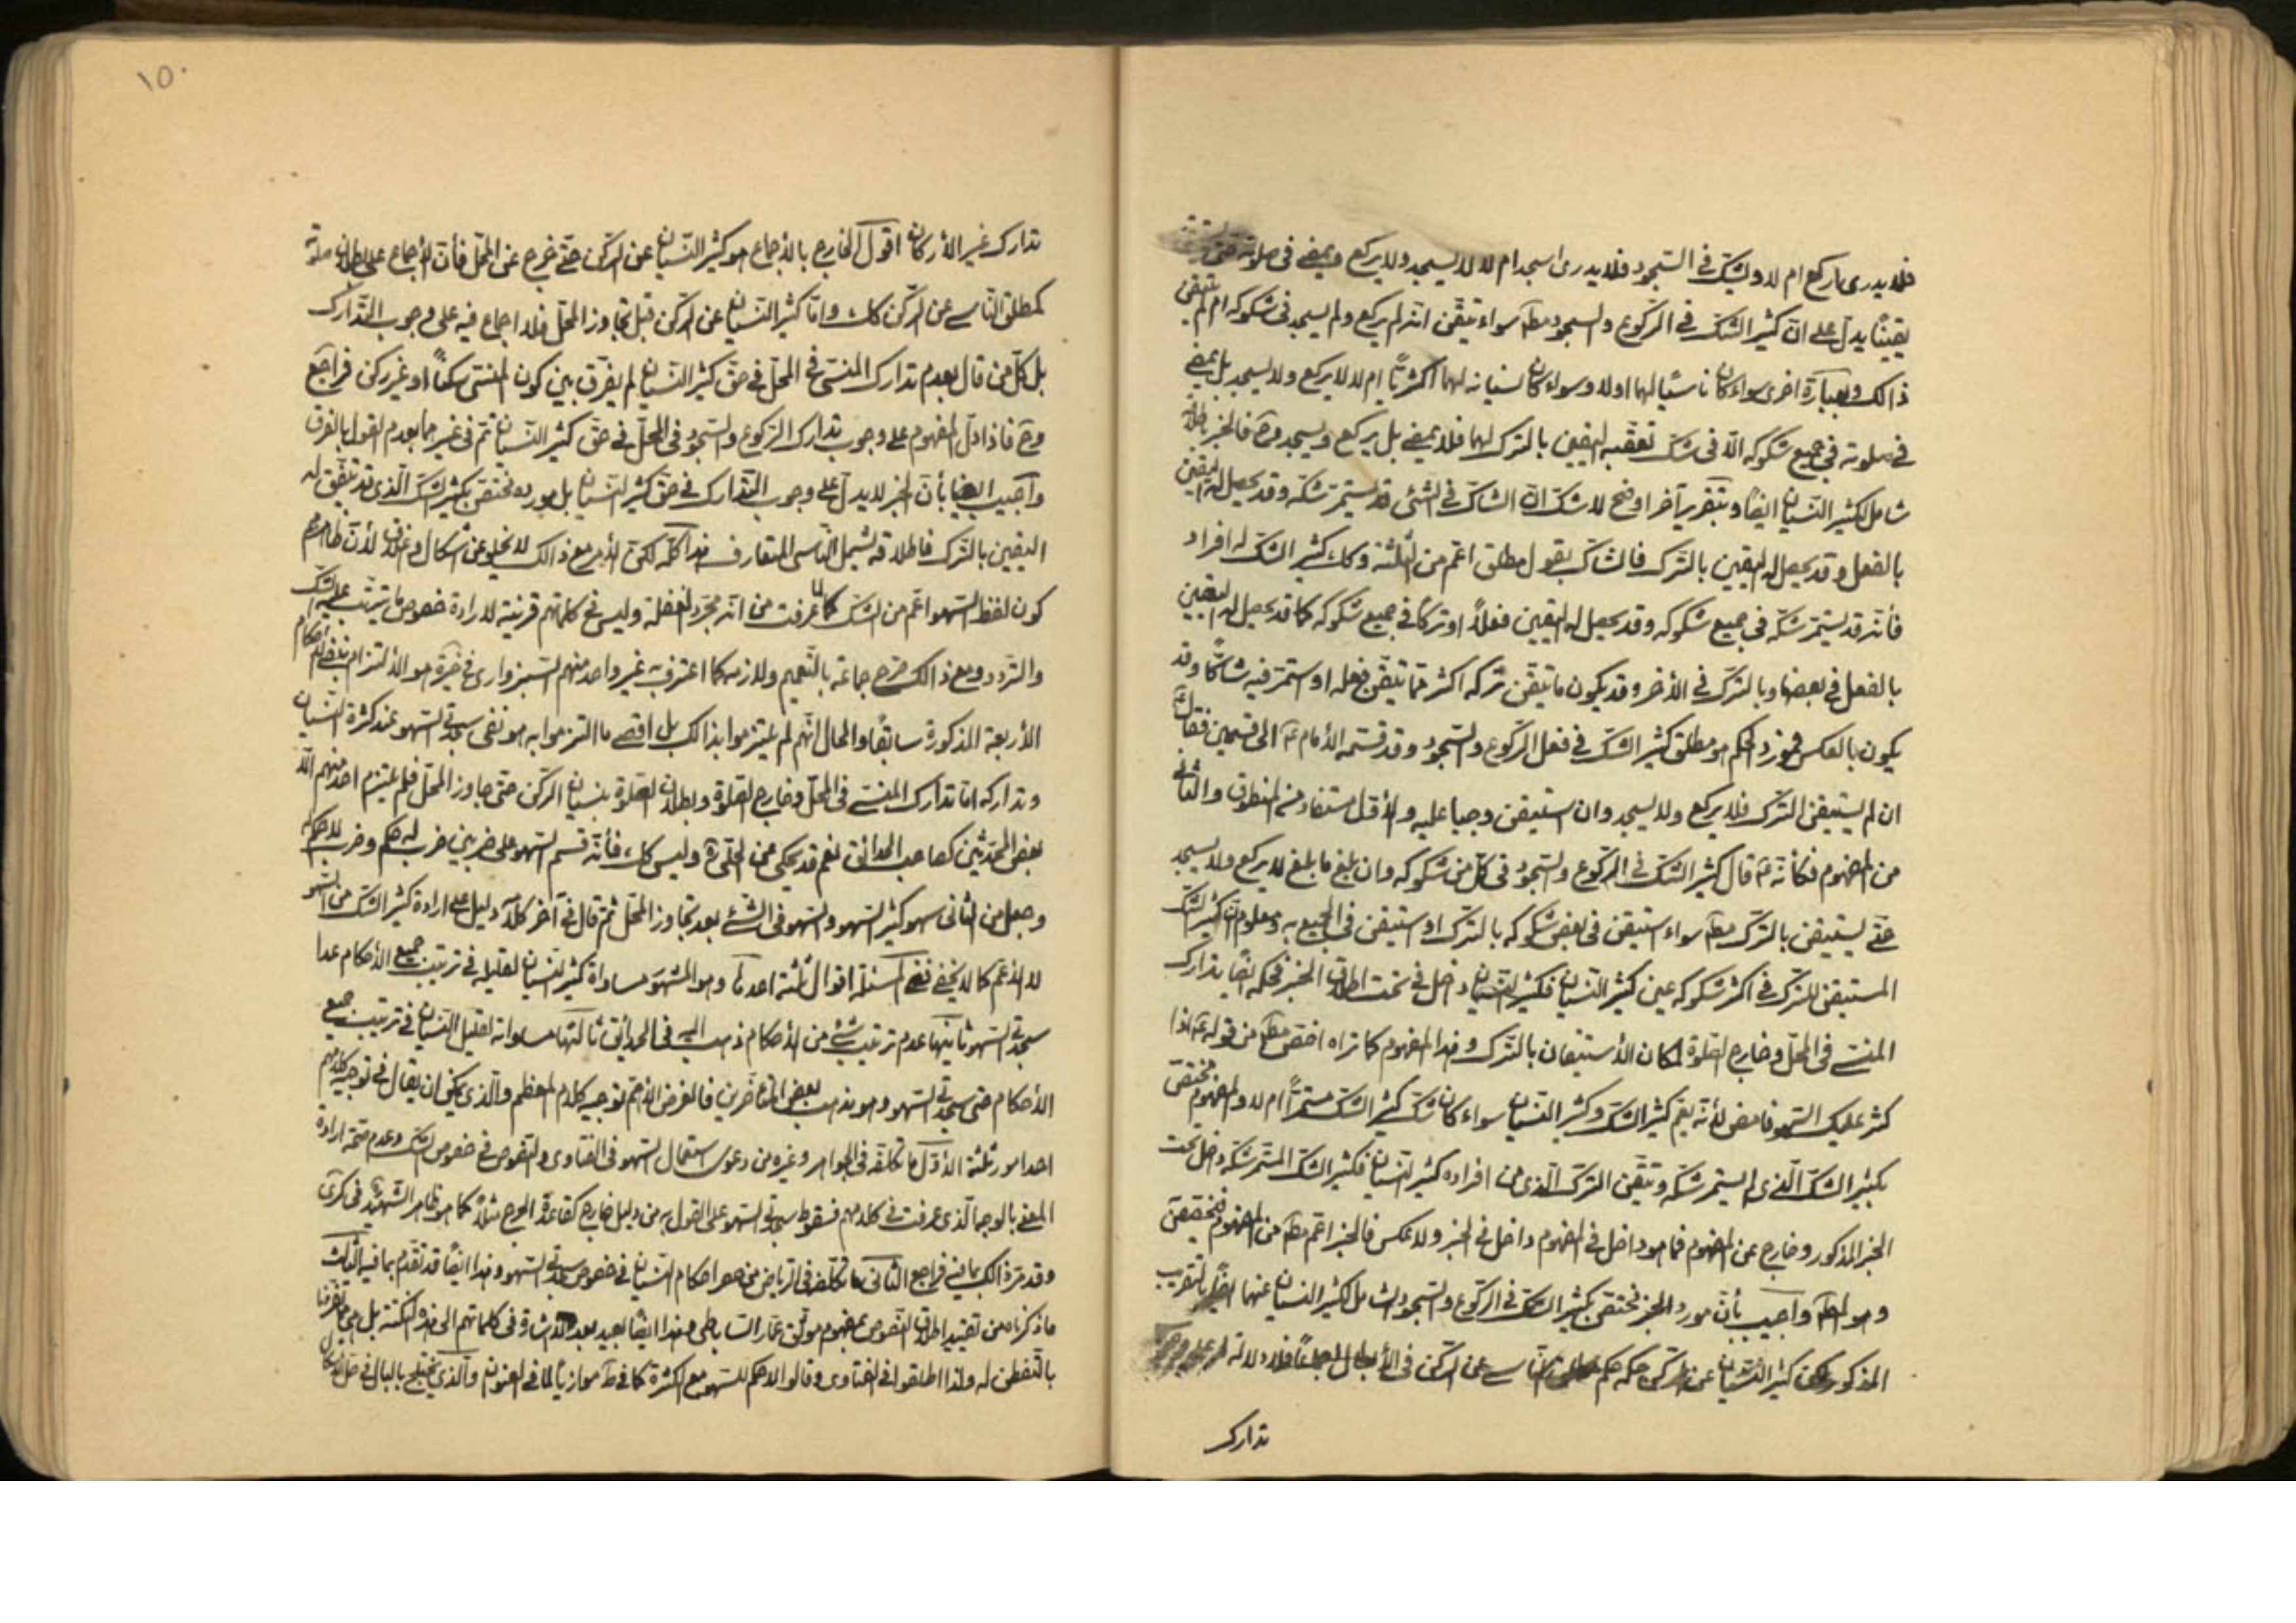 فلا يدرى اركع ام لا ويشكّ فى السّجود فلا يدرى اسجد ام لا لا يسجد ولا يركع ويمضى فى صلوته حتى يستيقن
يقينًا يدلّ على انّ كثير الشكّ فى الرّكوع والسجود مط سواء تيقّن انّه لم يركع ولم يسجد فى شكوكه ام لم يتيقن
ذالك وبعبارة اخرى سواء كان ناسيًا لهما اولا وسواء كان نسيانه لهما اكثريًّا ام لا لا يركع ولا يسجد بل يمضى
فى صلوته فى جميع شكوكه الّا فى شكّ تعقّبه اليقين بالترك لهما فلا يمضى بل يركع ويسجد فالخبر
شامل لكثير النّسيان ايضًا وبتقرير آخر اوضح لا شكّ انّ الشاكّ فى الشئ قد يستمرّ شكّه وقد يحصل له اليقين
بالفعل وقد يحصل له اليقين بالترك فالشاكّ بقول مطلق اعمّ من الثلثة وكك كثير الشكّ له افراد
فأنّه قد يستمرّ شكّه فى جميع شكوكه وقد يحصل له اليقين فعلًا او تركًا فى جميع شكوكه كما قد يحصل له اليقين
بالفعل فى بعضها وبالترك فى الأخر وقد يكون ما تيقّن تركه اكثر ممّا تيقّن فعله او استمرّ فيه شاكًّا وقد
يكون بالعكس فمورد الحكم هو مطلق كثير الشكّ فى فعل الرّكوع والسّجود وقد قسّمه الأمام ع الى قسمين فقال
ان لم يستيقن الترك فلا يركع ولا يسجد وان استيقن وجبا عليه والأوّل مستفاد من المنطوق والثانى
من المفهوم فكأنّه ع قال كثير الشكّ فى الرّكوع والسّجود فى كلّ من شكوكه وان بلغ ما بلغ لا يركع ولا يسجد
حتّى يستيقن بالترك مط سواء استيقن فى بعض شكوكه بالترك او استيقن فى الجميع به ومعلوم انّ كثير الشكّ
المستيقن للترك فى اكثر شكوكه عين كثير النّسيان فكثير النّسيان داخل فى تحت اطلاق الخبر فحكمه ايضًا تدارك
المنسىّ فى المحلّ وخارج الصّلوة لمكان الأستيقان بالترك وهذا المفهوم كما تراه اخصّ مط من قوله ع اذا
كثر عليك السّهو فامض لأنّه يعمّ كثير الشكّ وكثير النّسيان سواء كان شكّ كثير الشكّ مستمرًّا ام لا والمفهوم مختصّ
بكثير الشكّ الّذى لم يستمرّ شكّه وتيقّن الترك الّذى من افراده كثير النّسيان فكثير الشكّ المستمرّ شكّه داخل تحت
الخبر المذكور وخارج عن المفهوم فما هو داخل فى المفهوم داخل فى الخبر ولا عكس فالخبر اعمّ مط من المفهوم فيخصّص
وهو المط واجيب بأنّ مورد الخبر مختصّ بكثير الشكّ فى الرّكوع والسّجود الشامل لكثير النسيان عنهما ايضًا بالتقريب
المذكور كثير النّسيان عن الركن حكمه حكم النّاسى عن الركن فى الأبطال اجماعًا فلا دلالة له على وجوب
تدارك
١٥٠
تدارك غير الأركان اقول الخارج بالأجماع هو كثير النّسيان عن الركن حتّى خرج عن المحلّ فأنّ الأجماع على بطلان صلوته
كمطلق النّاسى عن الركن كك وامّا كثير النّسيان عن الركن قبل تجاوز المحلّ فلا اجماع فيه على وجوب التّدارك
بل كلّ من قال بعدم تدارك المنسىّ فى المحلّ فى حقّ كثير النّسيان لم يفرّق بين كون المنسىّ ركنًا او غير ركن فراجع
وح فاذا دلّ المفهوم على وجوب تدارك الركوع والسّجود فى المحلّ فى حقّ كثير النّسيان تمّ فى غيرهما بعدم القول بالفرق
واجيب ايضًا بأنّ الخبر لا يدلّ على وجوب التّدارك فى حقّ كثير النّسيان بل مورده مختصّ بكثير الشكّ الّذى قد يتّفق له
اليقين بالترك فاطلاقه يشمل النّاسى المتعارف هذا كلّه لكنّ الأمر مع ذالك لا يخلو عن اشكال واغلاق لأنّ ظاهرهم
كون لفظ السّهو اعمّ من الشكّ كما عرفت من انّه مجرّد الغفلة وليس فى كلماتهم قرينة لارادة خصوص ما يترتّب عليه الشكّ
والتّردد ومع ذالك صرّح جماعة بالتّعميم ولازمه كما اعترف به غير واحد منهم السّبزوارى فى الذخيرة هو الألتزام بنفى الأحكام
الأربعة المذكورة سابقًا والحال انّهم لم يلتزموا بذالك بل اقصى ما التزموا به هو نفى سجدتى السّهو عند كثرة النّسيان
وتداركه امّا تدارك المنسىّ فى المحلّ وخارج الصّلوة وبطلان الصّلوة بنسيان الركن حتّى جاوز المحلّ فلم يلتزم احد منهم الّا
بعض المحدّثين كصاحب الحدائق نعم قد يحكى عن الحلّى وليس كك فأنّه قسّم السّهو على ضربين ضرب له حكم وضرب لا حكم له
وجعل من الثّانى سهو كثير السّهو والسّهو فى الشئ بعد تجاوز المحلّ ثمّ قال فى آخر كلامه دليل على ارادة كثير الشكّ من السّهو
لا الأعمّ كما لا يخفى ففى المسئلة اقوال ثلثة احدها وهو المشهور مساواة كثير النّسيان لقليله فى ترتيب جميع الأحكام عدا
سجدتى السّهو ثانيها عدم ترتيب شئ من الأحكام ذهب اليه فى الحدائق ثالثها مساواته لقليل النّسيان فى ترتيب جميع
الأحكام حتى سجدتى السّهو وهو مذهب بعض المتأخّرين فالغرض الأهمّ توجيه كلام المعظم والّذى يمكن ان يقال فى توجيه كلامهم
احد امور ثلثة الأوّل ما تكلّفه فى الجواهر وغيره من دعوى استعمال السّهو فى الفتاوى والنّصوص فى خصوص الشكّ وعدم صحّة ارادة
المعنى بالوجه الّذى عرفت فى كلامهم فسقوط سجدتى السّهو على القول به من دليل خارج كقاعدة الحرج مثلًا كما هو ظاهر الشّهيد فى كرى
وقد مرّ ذالك بما فيه فراجع الثّانى ما تكلّفه فى الرياض من حصر احكام النّسيان فى خصوص سجدتى السّهو وهذا ايضًا قد تقدّم بما فيه الثّالث
ما ذكرناه من تقييد اطلاق النّصوص بمفهوم موثّق عمّار السّاباطى وهذا ايضًا بعيد بعد الأشارة فى كلماتهم الى هذه النكتة بل هى ممّا تفرّدنا
بالتفطّن له ولذا اطلقوا فى الفتاوى وقالوا لا حكم للسّهو مع الكثرة كما فى موازيًا لما فى العنوان والّذى يختلج بالبال فى حلّ